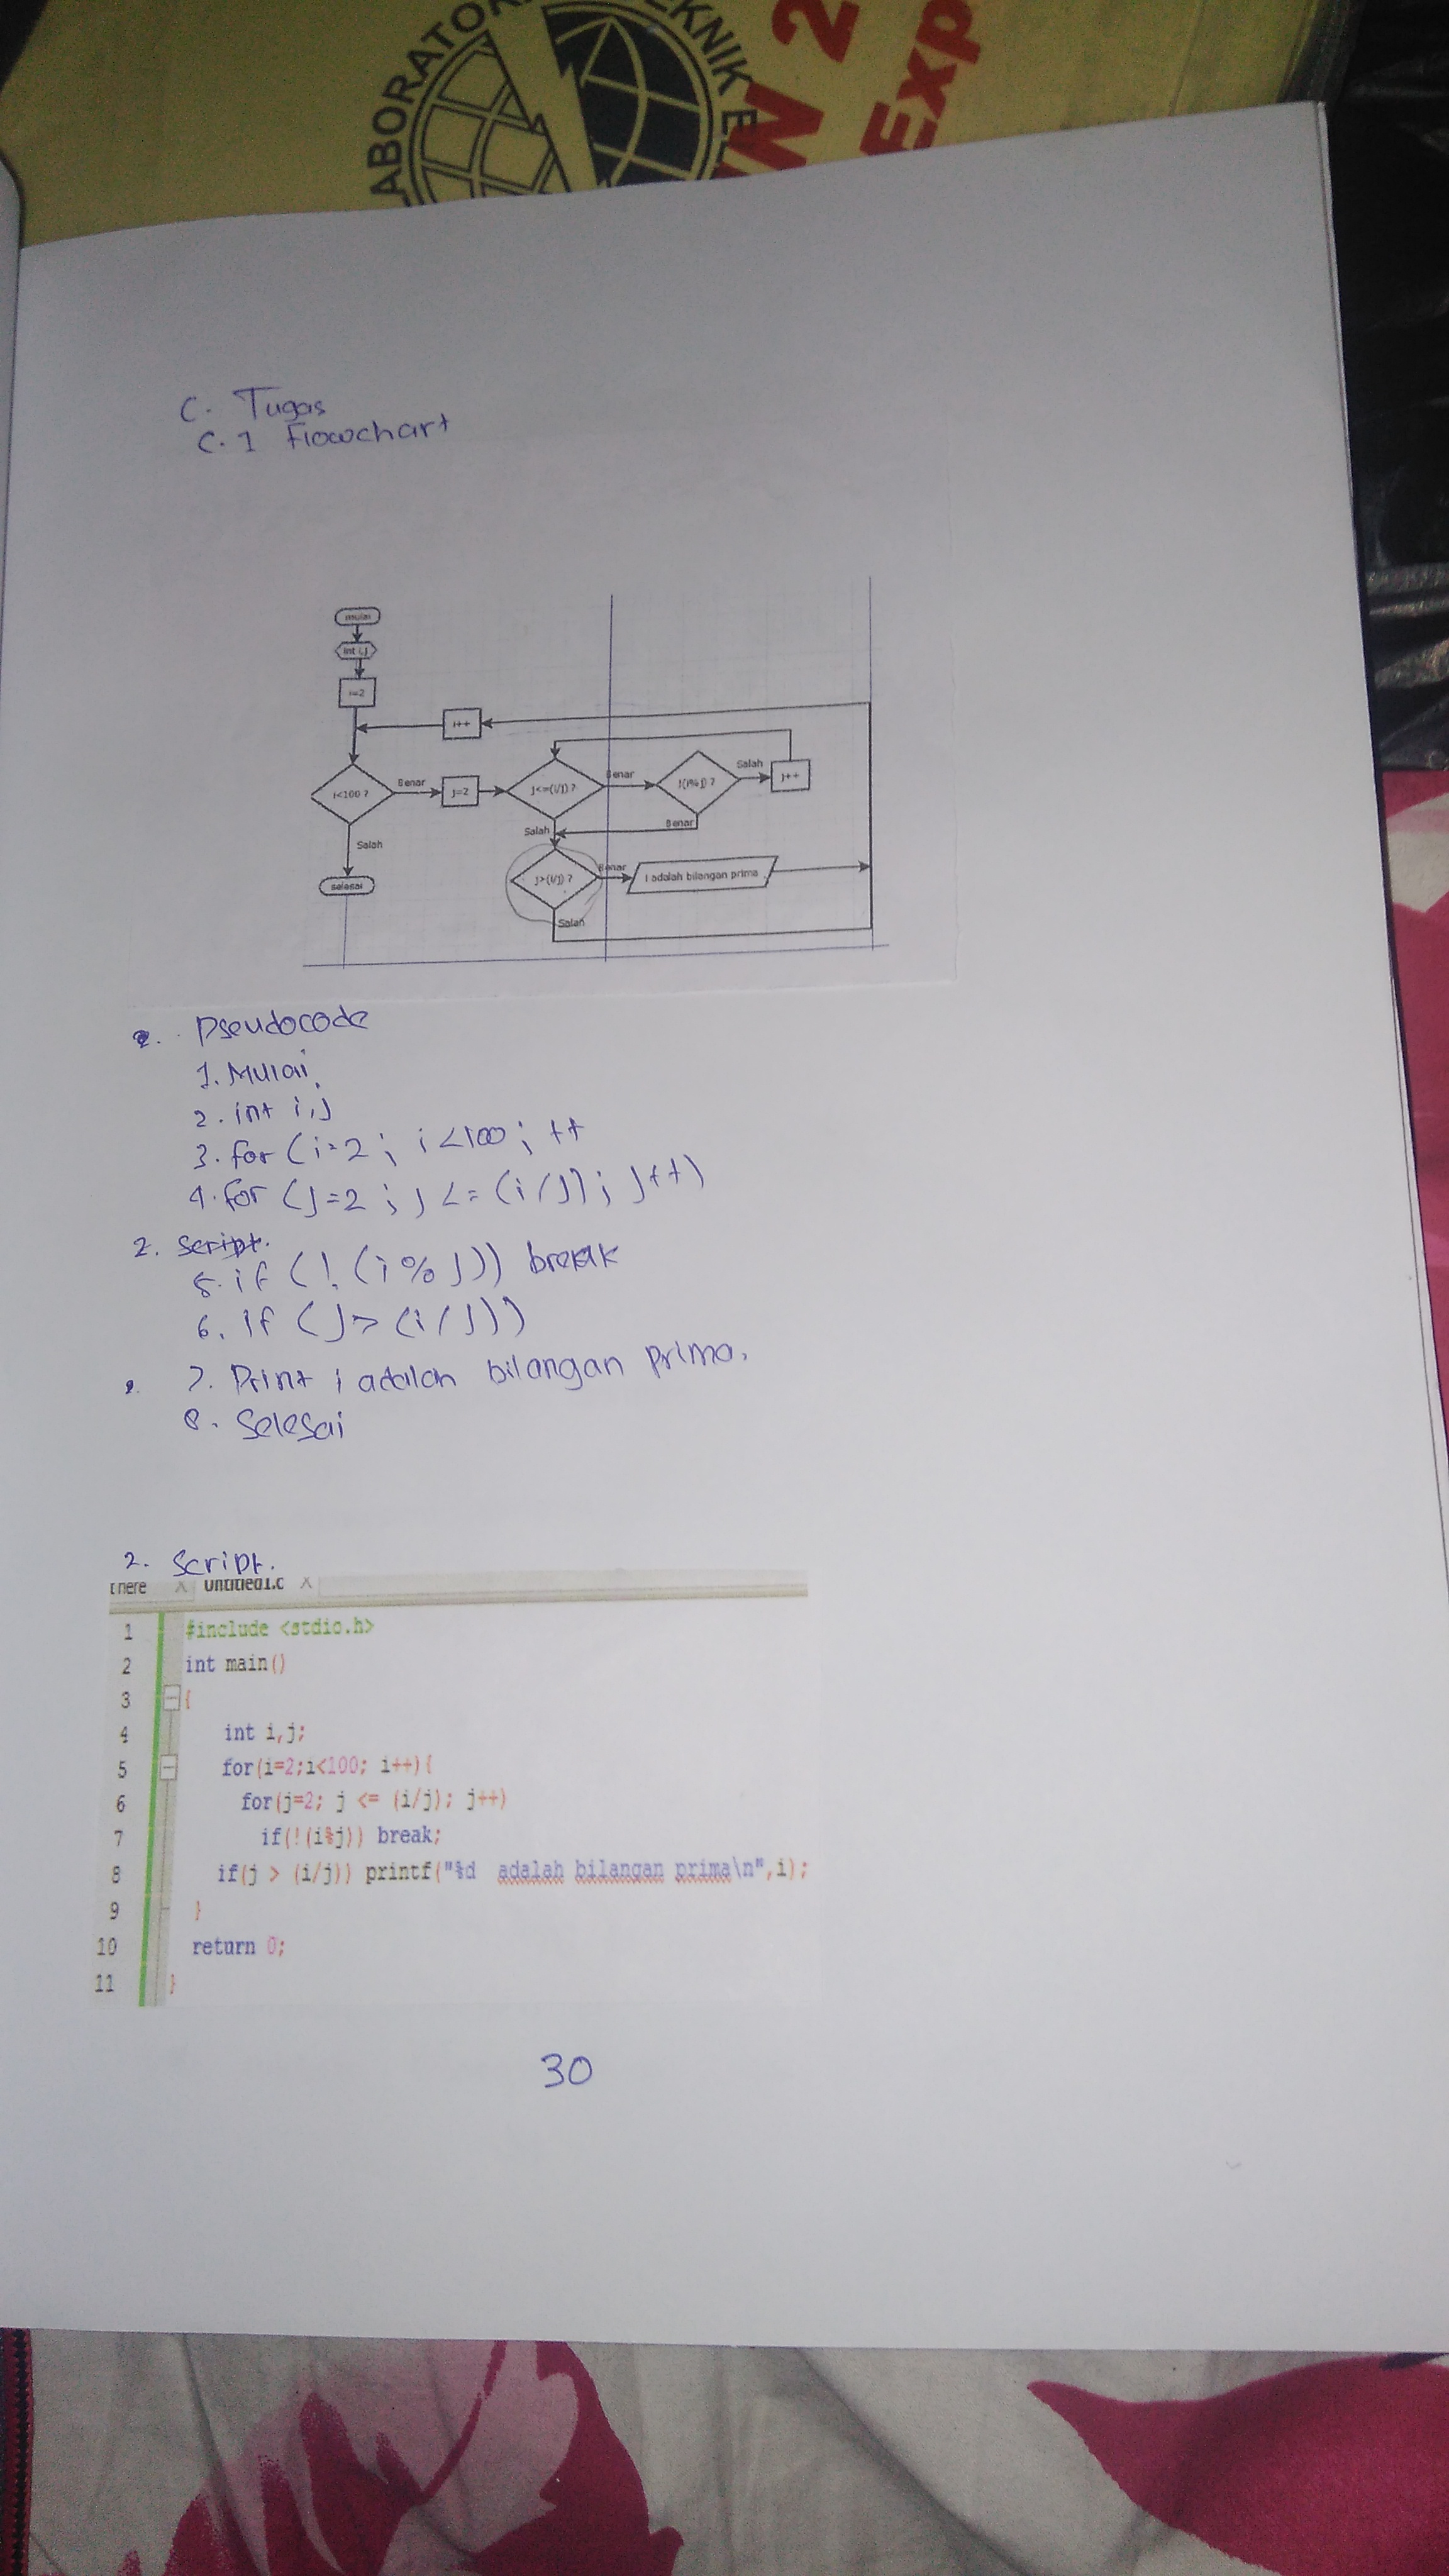 ABORATOR
EKNIK E
IN 2
Exp
C. Tugas
C.1 Flowchart
mulai
int i,j
i=2
i++
i<100 ?
Benar
j=2
j<=(i/j) ?
Benar
!(i%j) ?
Salah
j++
Salah
Benar
Salah
selesai
j>(i/j) ?
Benar
I adalah bilangan prima
Salah
2. Pseudocode
1. Mulai
2. int i,j
3. for (i=2; i<100; ++
4. for (j=2; j <= (i/j); j++)
2. Script.
5. if (!(i%j)) break
6. if (j> (i/j))
7. Print i adalah bilangan prima.
8. Selesai
2. Script.
t here X Untitled1.c X
1 #include <stdio.h>
2 int main()
3 {
4 int i,j;
5 for(i=2;i<100; i++){
6 for(j=2; j <= (i/j); j++)
7 if(!(i%j)) break;
8 if(j > (i/j)) printf("%d adalah bilangan prima\n",i);
9 }
10 return 0;
11 }
30